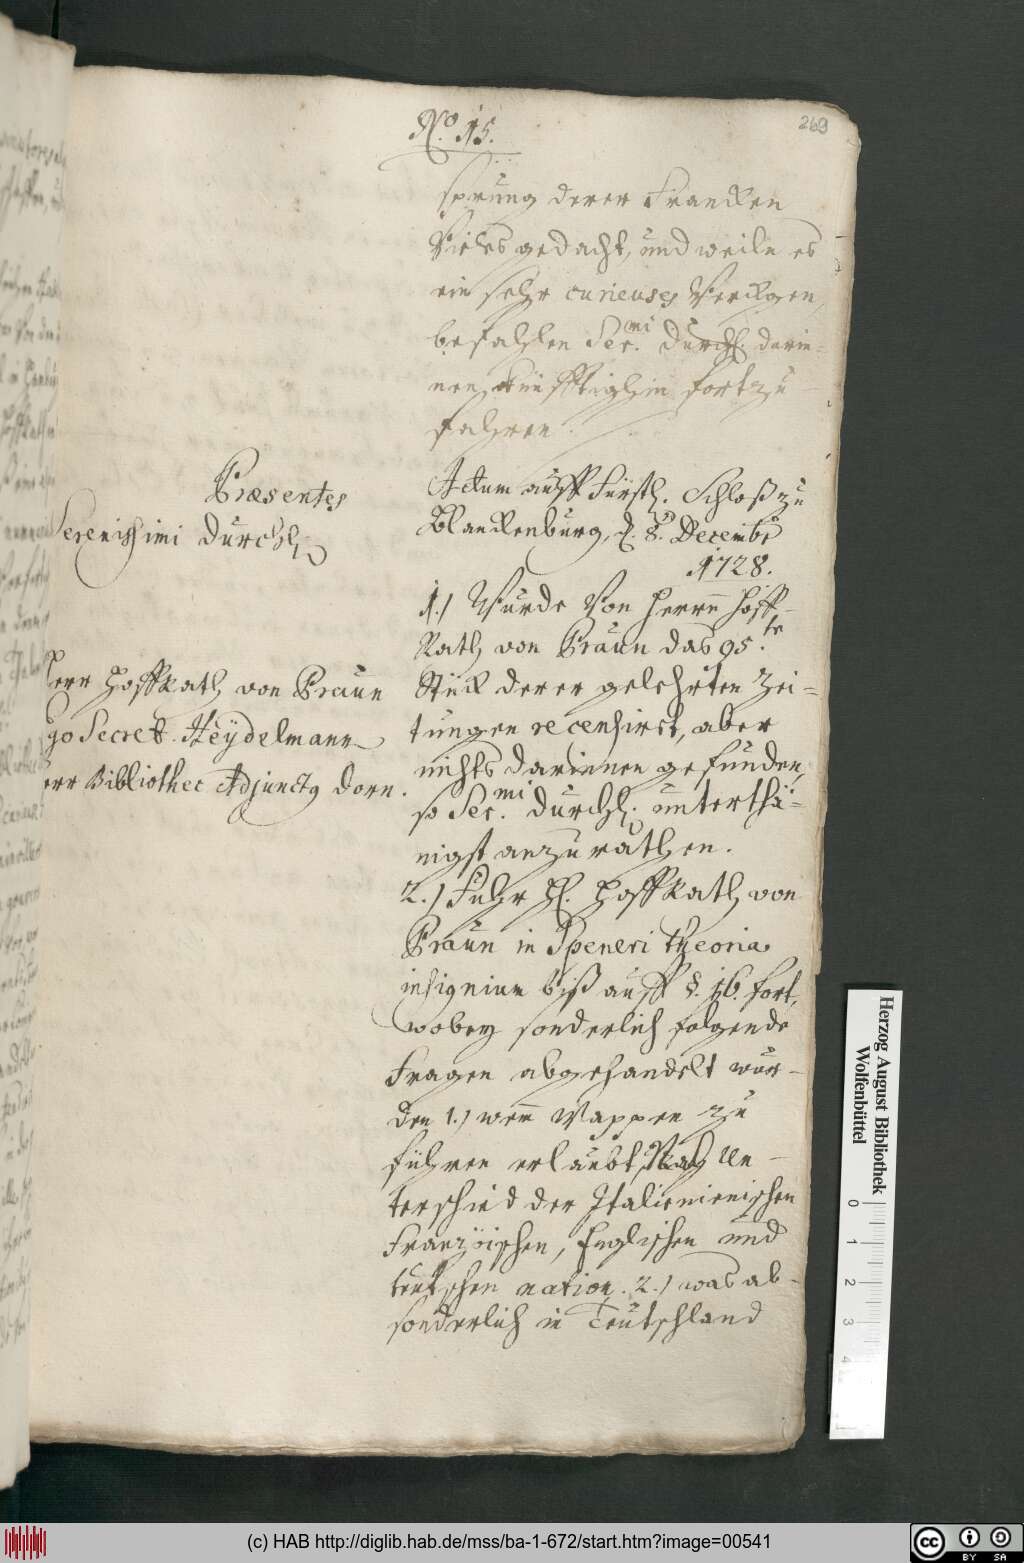 No. 15.
269
sprung derer Francken
Vieles gedacht, und weiln es
ein sehr curieuses Werckgen,
befahlen Ser.mi Durchl. darin=
nen künfftighin fortzu
fahren.
Actum auff Fürstl. Schloß zu
Blanckenburg, d. 8. Decembr
1728.
Præsentes
Serenissimi Durchl.
Herr HoffRath von Praun
Secret. Heÿdelmann
Herr Bibliothec Adjunctg Dorn.
1.) Wurde von Herrn Hoff-
Rath von Praun das 95.te
Stück derer gelehrten Zei=
tungen recensiret, aber
nichts darinnen gefunden,
so Ser.mi Durchl. unterthä=
nigst anzurathen.
2.) Fuhr H. HoffRath von
Praun in Speneri theoria
insignium biß auff §. 16. fort,
wobey sonderlich folgende
Fragen abgehandelt wur-
den 1.) wem Wappen zu
führen erlaubt, Nach Un-
terschied der Italienienischen
Französischen, Englischen und
teutschen nation. 2.) was ab-
sonderlich in Teutschland
Herzog August Bibliothek
Wolfenbüttel
0 1 2 3 4
(c) HAB http://diglib.hab.de/mss/ba-1-672/start.htm?image=00541
cc BY SA